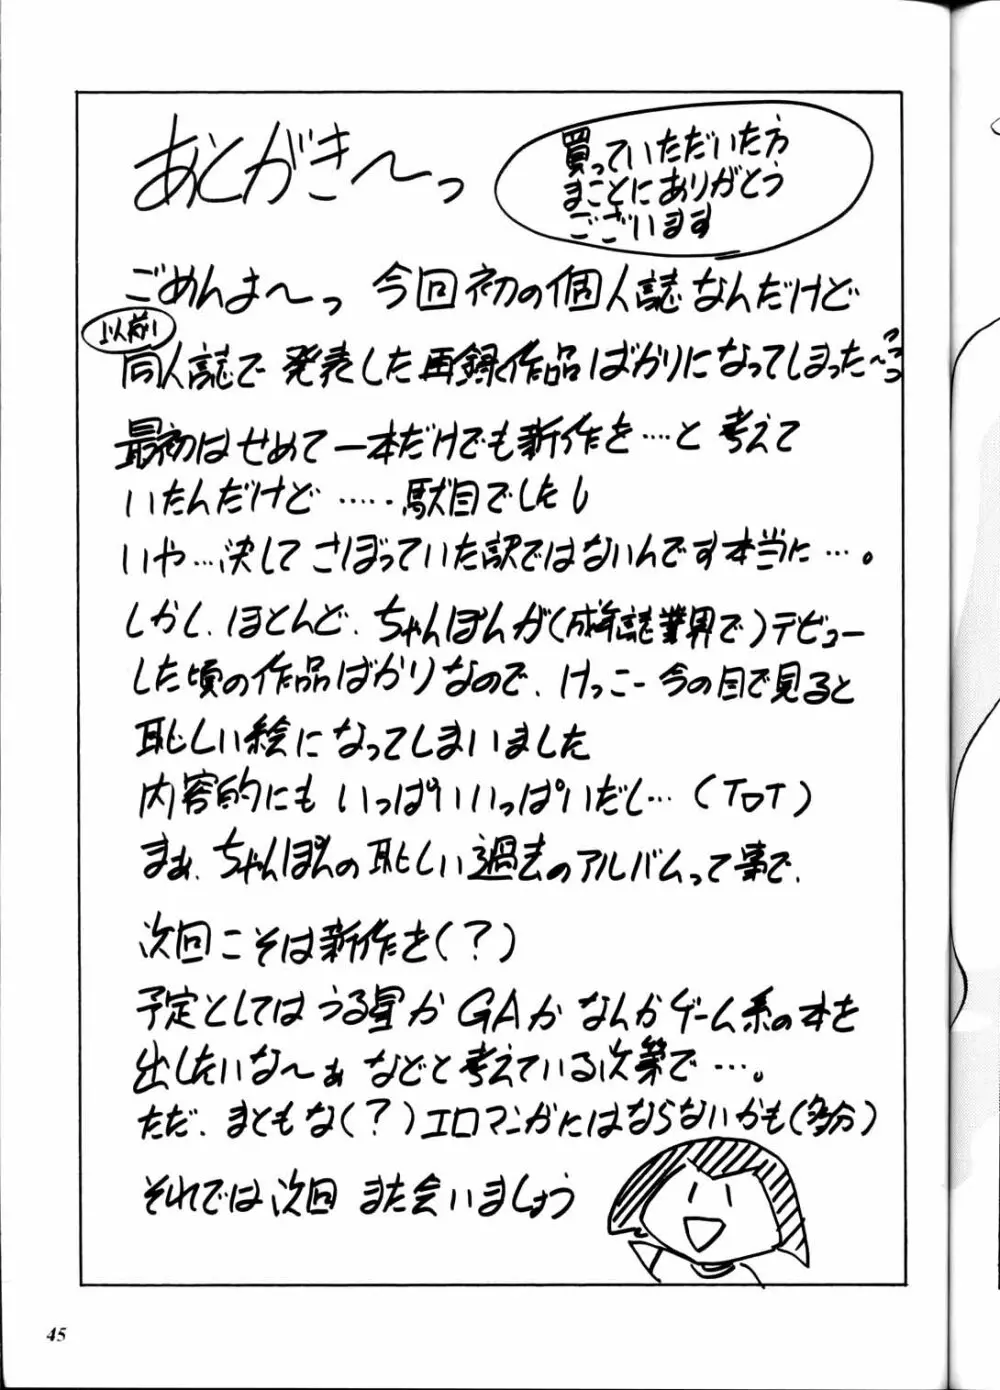 あとがき〜っ
買っていただいた方
まことにありがとう
ございます
ごめんよ〜っ 今回初の個人誌なんだけど
以前
同人誌で 発表した再録作品ばかりになってしまった〜っっっ
最初はせめて一本だけでも新作を…と 考えて
いたんだけど ……駄目でしたし
いや…決して さぼっていた訳ではないんです本当に…。
しかし、ほとんど、ちゃんぽんが(成年誌業界で)デビュー
した頃の作品ばかりなので、けっこー今の目で見ると
恥しい絵になってしまいました
内容的にも いっぱいいっぱいだし…(TOT)
まぁ、ちゃんぽんの恥しい過去のアルバムって事で、
次回こそは新作を(?)
予定としては うる星か GAか なんかゲーム系の本を
出したいな〜ぁ などと考えている次第で…。
ただ、まともな(?)エロマンガにはならないかも(多分)
それでは次回 また会いましょう
45